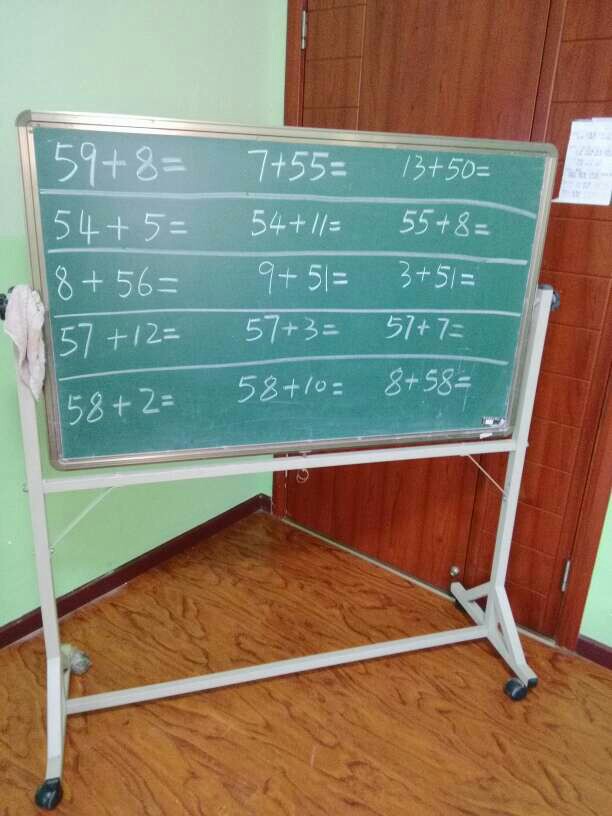 59+8= 7+55= 13+50=
54+5= 54+11= 55+8=
8+56= 9+51= 3+51=
57+12= 57+3= 57+7=
58+2= 58+10= 8+58=